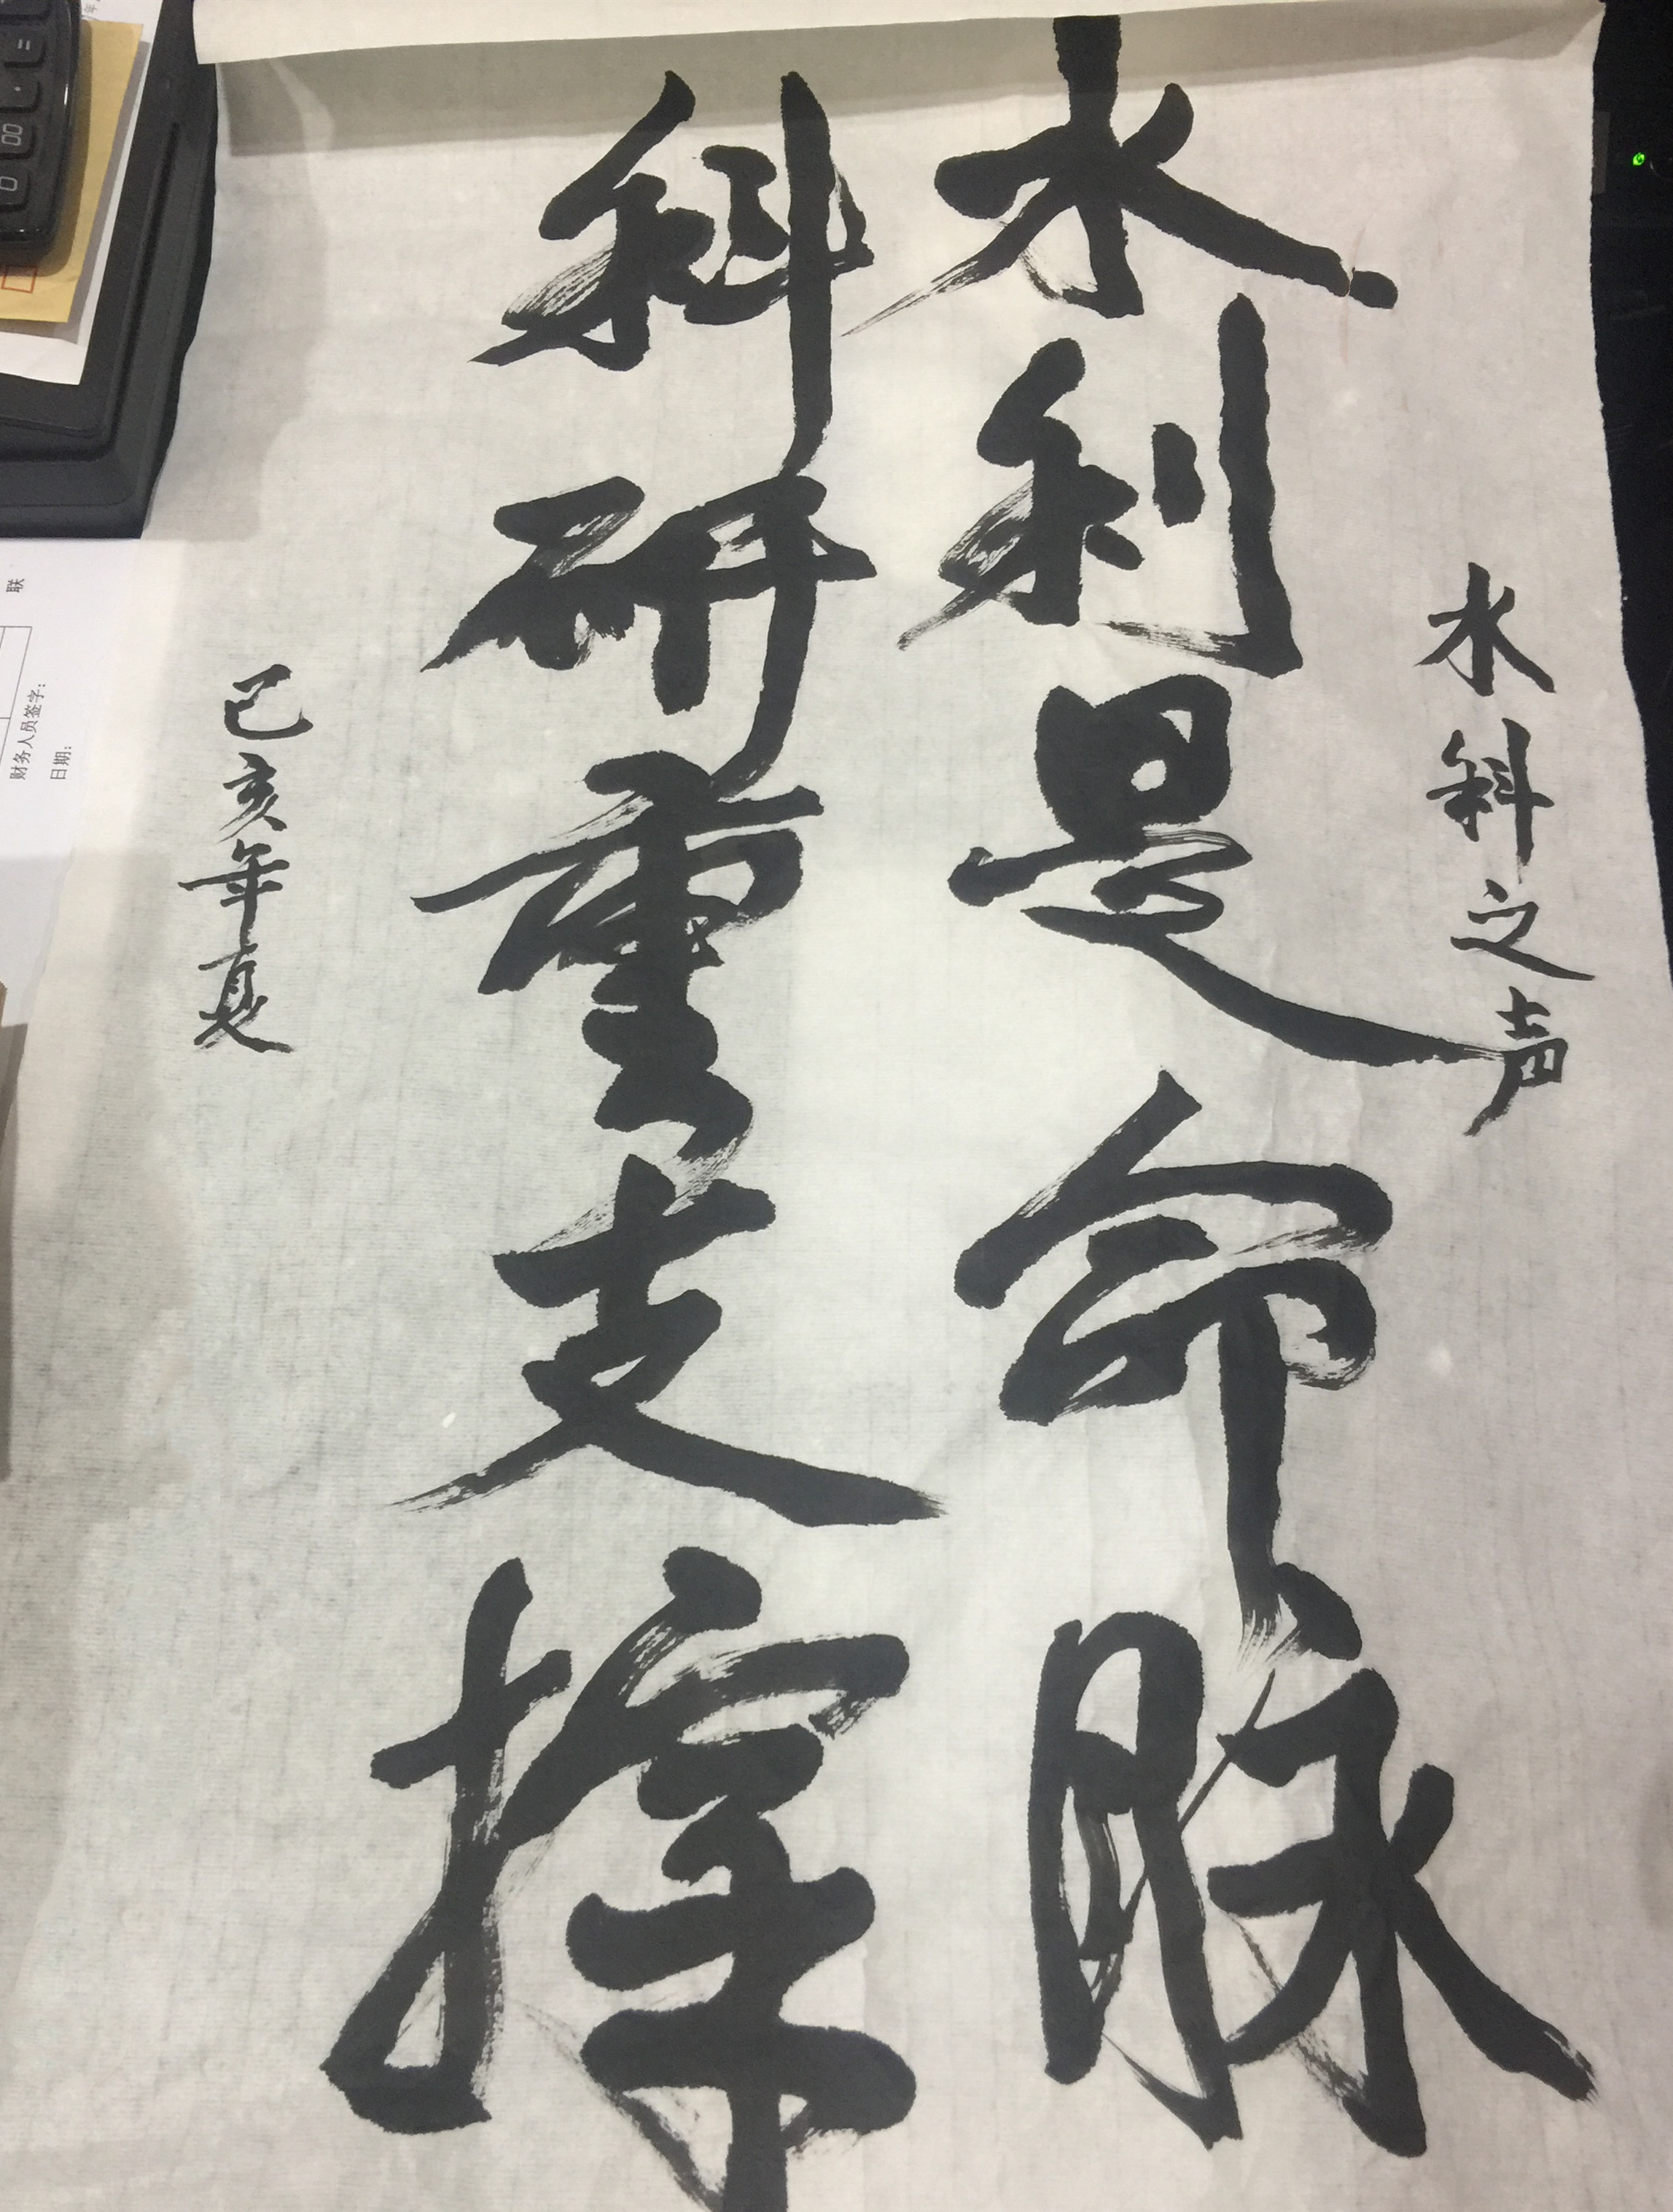 水科之声
水利是命脉
科研重支撑
己亥年夏
联
财务人员签字:
日期:
=
.
00
0